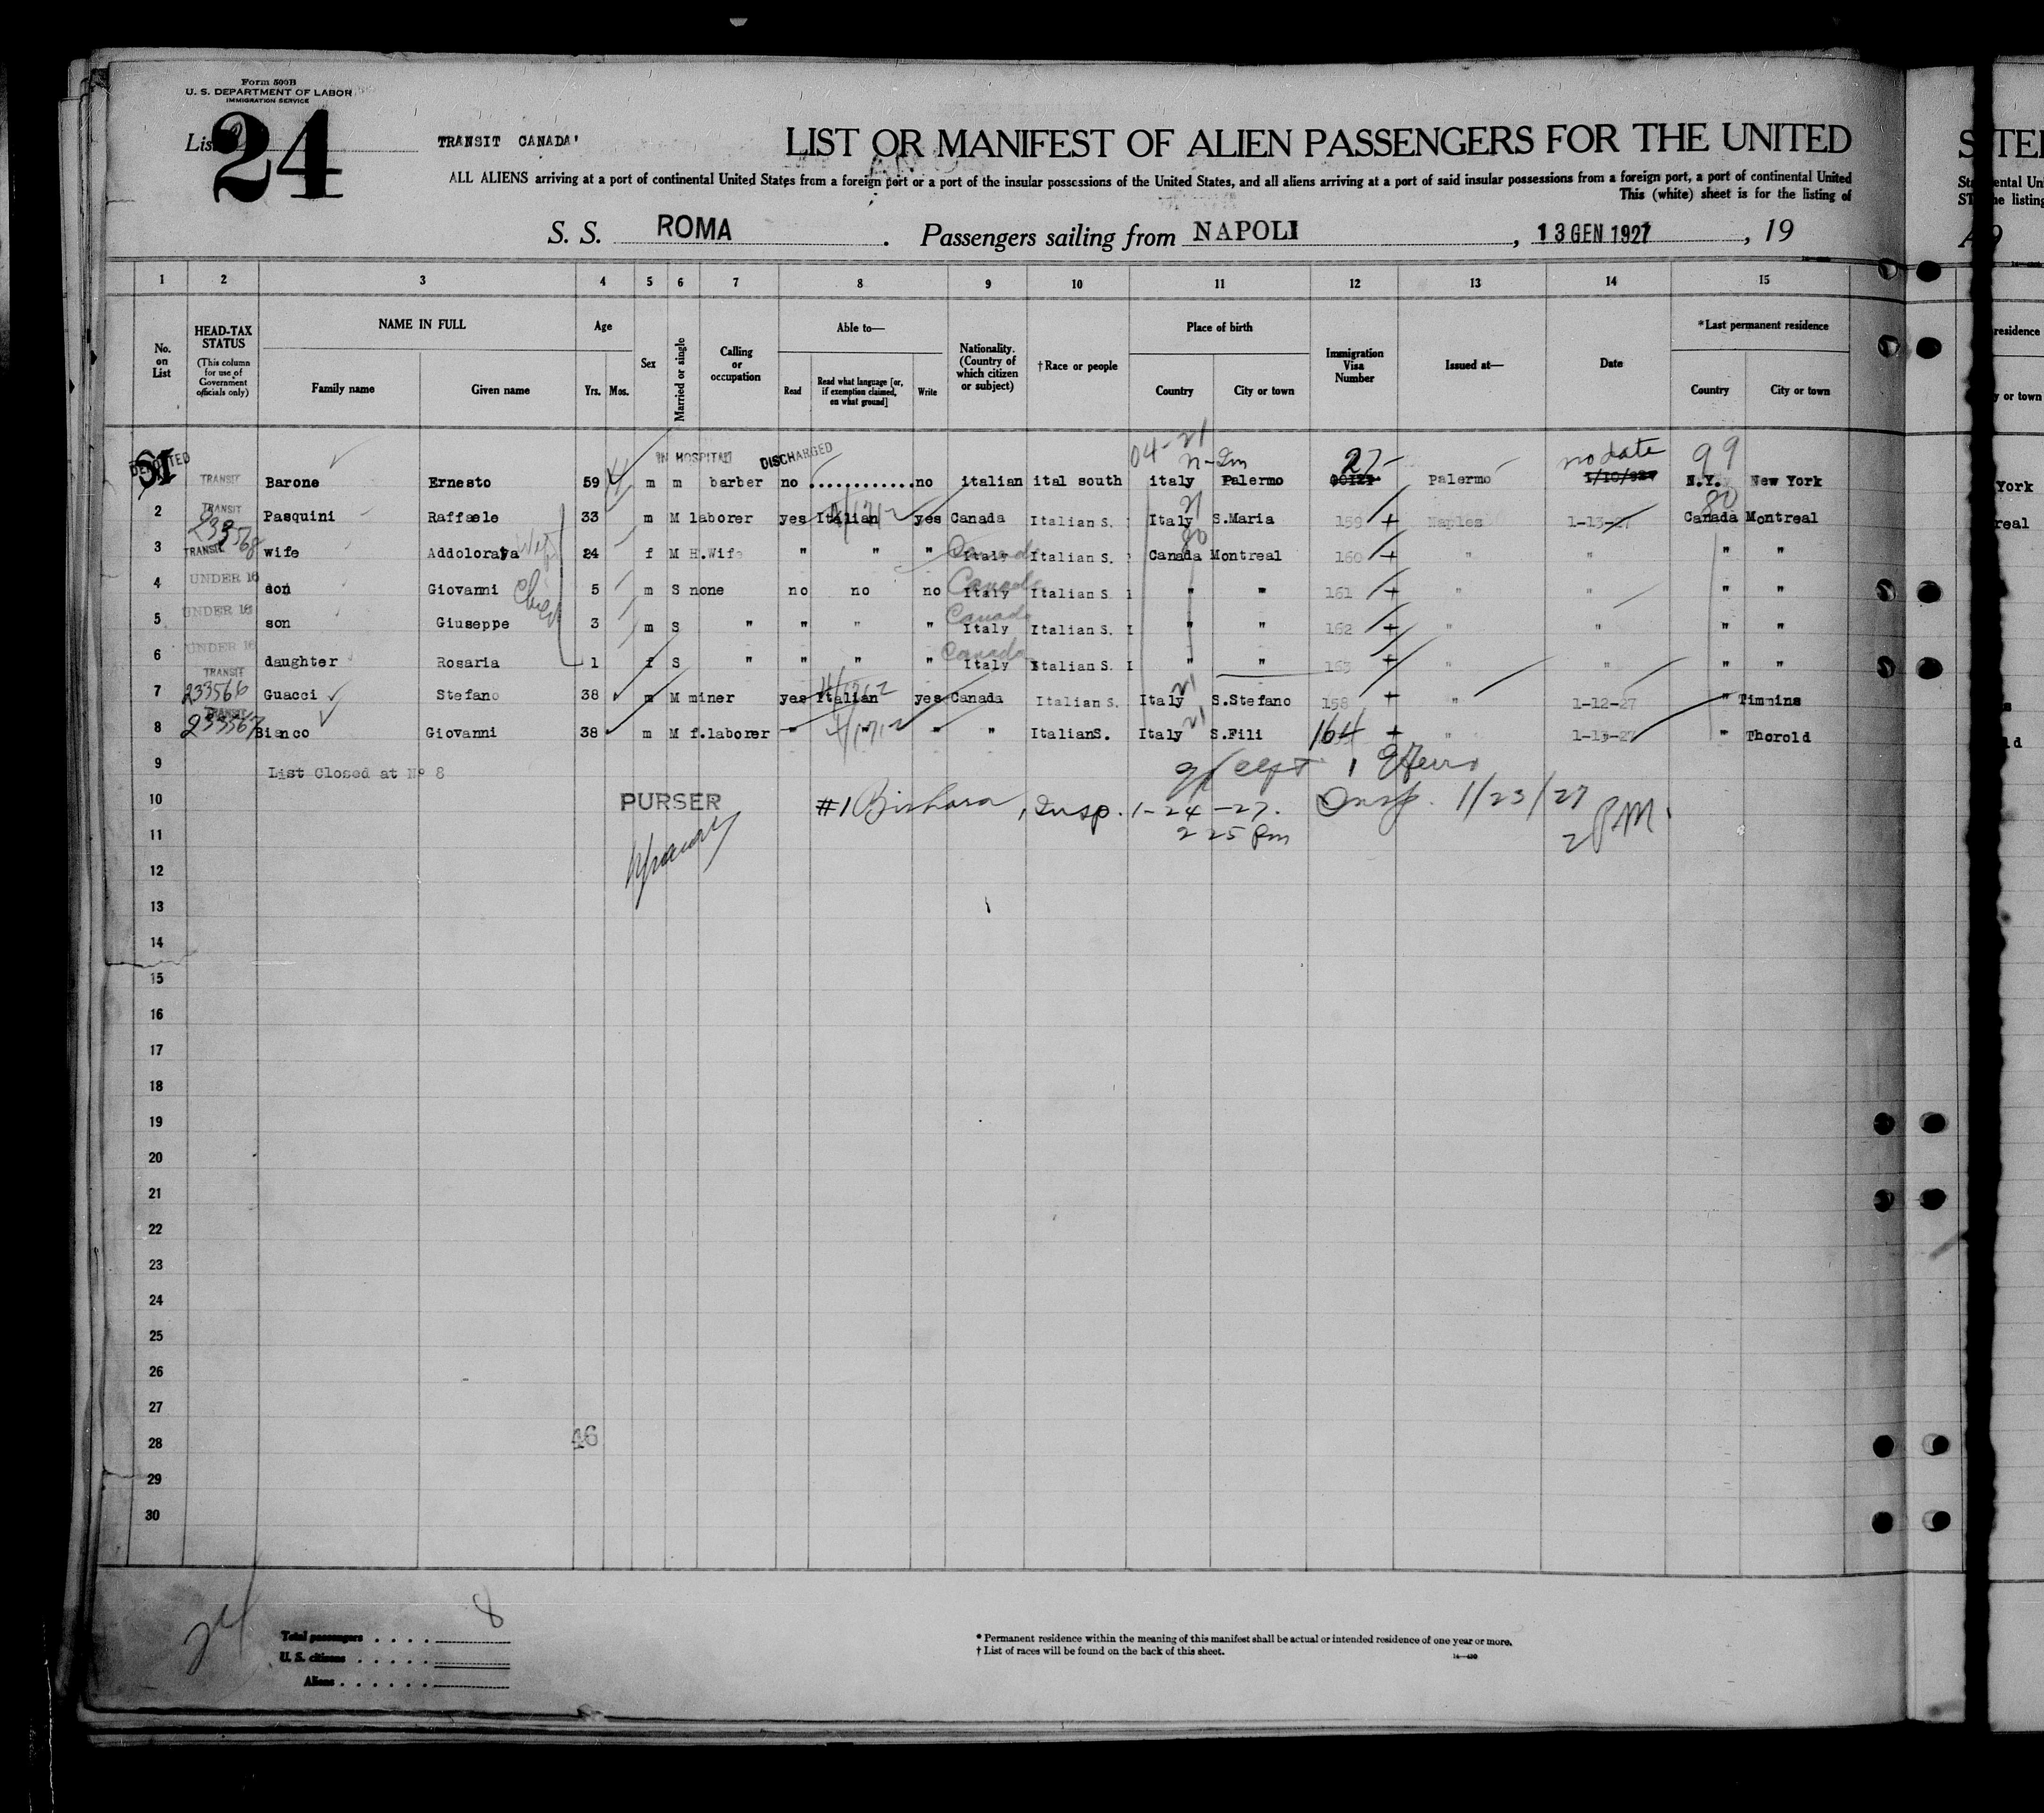 Form 500B
U. S. DEPARTMENT OF LABOR
IMMIGRATION SERVICE
List 24
TRANSIT CANADA'
LIST OR MANIFEST OF ALIEN PASSENGERS FOR THE UNITED
ALL ALIENS arriving at a port of continental United States from a foreign port or a port of the insular possessions of the United States, and all aliens arriving at a port of said insular possessions from a foreign port, a port of continental United
This (white) sheet is for the listing of
S. S. ROMA . Passengers sailing from NAPOLI , 13 GEN 1927 , 19
1 2 3 4 5 6 7 8 9 10 11 12 13 14 15
No. on List
HEAD-TAX STATUS
(This column for use of Government officials only)
NAME IN FULL
Family name Given name
Age
Yrs. Mos.
Sex
Married or single
Calling or occupation
Able to—
Read
Read what language [or, if exemption claimed, on what ground]
Write
Nationality. (Country of which citizen or subject)
†Race or people
Place of birth
Country City or town
Immigration Visa Number
Issued at—
Date
*Last permanent residence
Country City or town
IN HOSPITAL DISCHARGED 04- 21 27- no date 99
TRANSIT Barone Ernesto 59 m m barber no ............ no italian ital south italy Palermo Palermo 1/10/927 N.Y. New York
2 TRANSIT 233568 Pasquini Raffaele 33 m M laborer yes Italian yes Canada Italian S. Italy S.Maria 159 + Naples 1-13-27 Canada Montreal
3 TRANSIT wife Addolorata 24 f M H.Wife " " " Italy Canada Italian S. Canada Montreal 160 + " " " "
4 UNDER 16 son Giovanni 5 m S none no no no Italy Canada Italian S. " " 161 + " " " "
5 UNDER 16 son Giuseppe 3 m S " " " " Italy Canada Italian S. " " 162 + " " " "
6 UNDER 16 daughter Rosaria 1 f S " " " " Italy Canada Italian S. " " 163 + " " " "
7 TRANSIT 233566 Guacci Stefano 38 m M miner yes Italian yes Canada Italian S. Italy S.Stefano 158 + " 1-12-27 " Timmins
8 TRANSIT 233567 Bianco Giovanni 38 m M f.laborer " " " " ItalianS. Italy S.Fili 164 + " 1-13-27 " Thorold
9 List Closed at No 8
10 PURSER #1 Bishara, Insp. 1-24-27. Insp. 1/23/27
11 2 25 Pm 2 PM.
12
13
14
15
16
17
18
19
20
21
22
23
24
25
26
27
28 46
29
30
24
8
Total passengers . . . .
U. S. citizens . . . . .
Aliens . . . . . .
* Permanent residence within the meaning of this manifest shall be actual or intended residence of one year or more.
† List of races will be found on the back of this sheet.